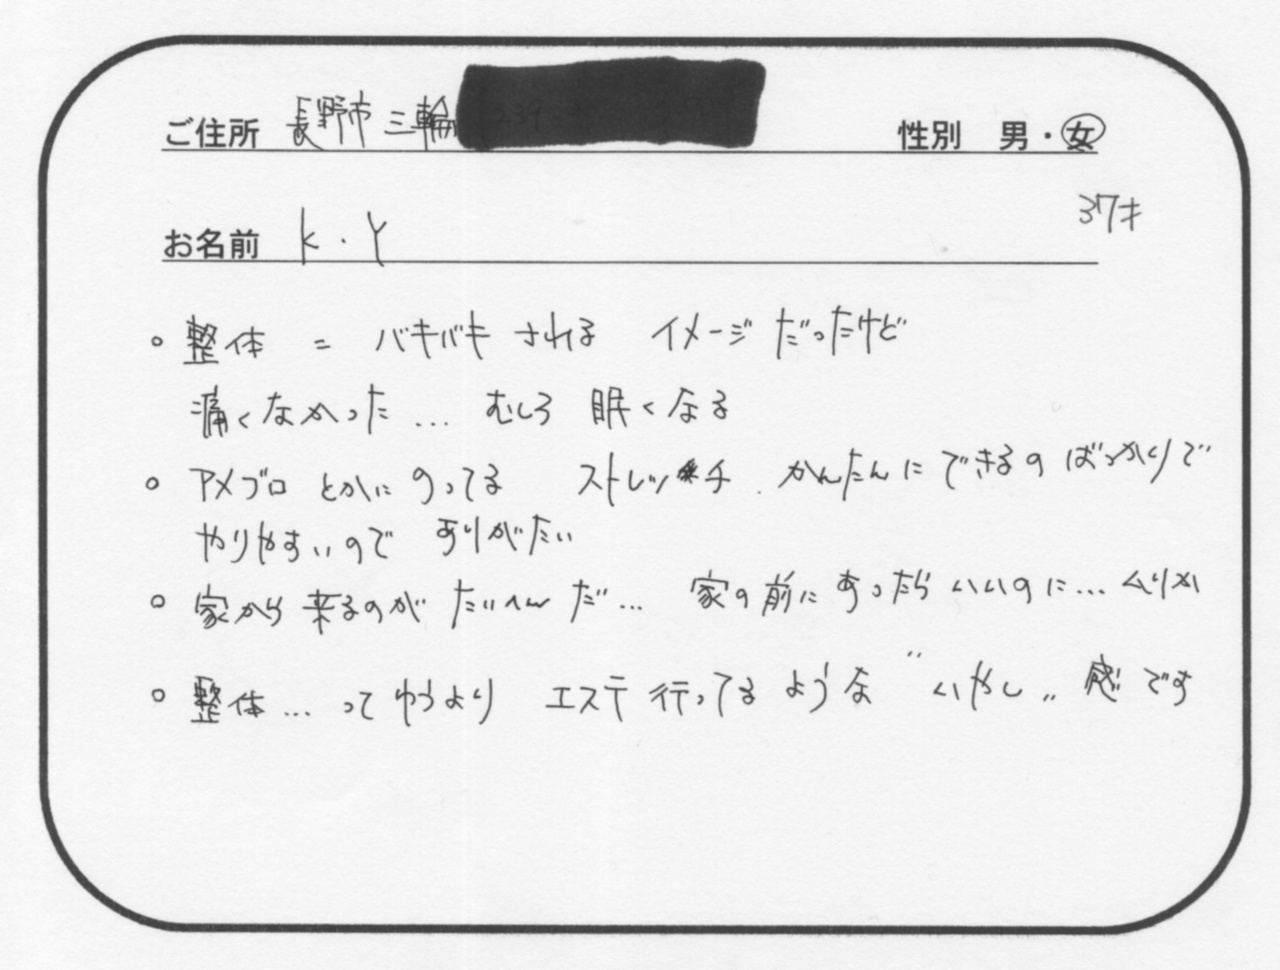 ご住所 長野市 三輪 性別 男・女
37才
お名前 K.Y
。整体 = バキバキ される イメージ だったけど
痛くなかった... むしろ 眠くなる
。アメブロ とかに のってる ストレッチ かんたんに できるのばっかりで
やりやすいので ありがたい
。家から 来るのが たいへんだ... 家の前に あったら いいのに... ムリか
。整体...ってゆうより エステ 行ってる ような "いやし" 感 です